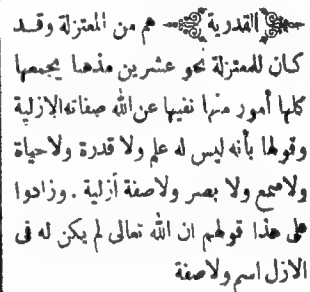 القدرية هم من المعتزلة وقد
كان للمعتزلة نحو عشرين مذهبا يجمعها
كلها أمور منها نفيها عن الله صفاته الازلية
وقولها بأنه ليس له علم ولا قدرة ولا حياة
ولا سمع ولا بصر ولا صفة أزلية . وزادوا
على هذا قولهم ان الله تعالى لم يكن له فى
الازل اسم ولا صفة